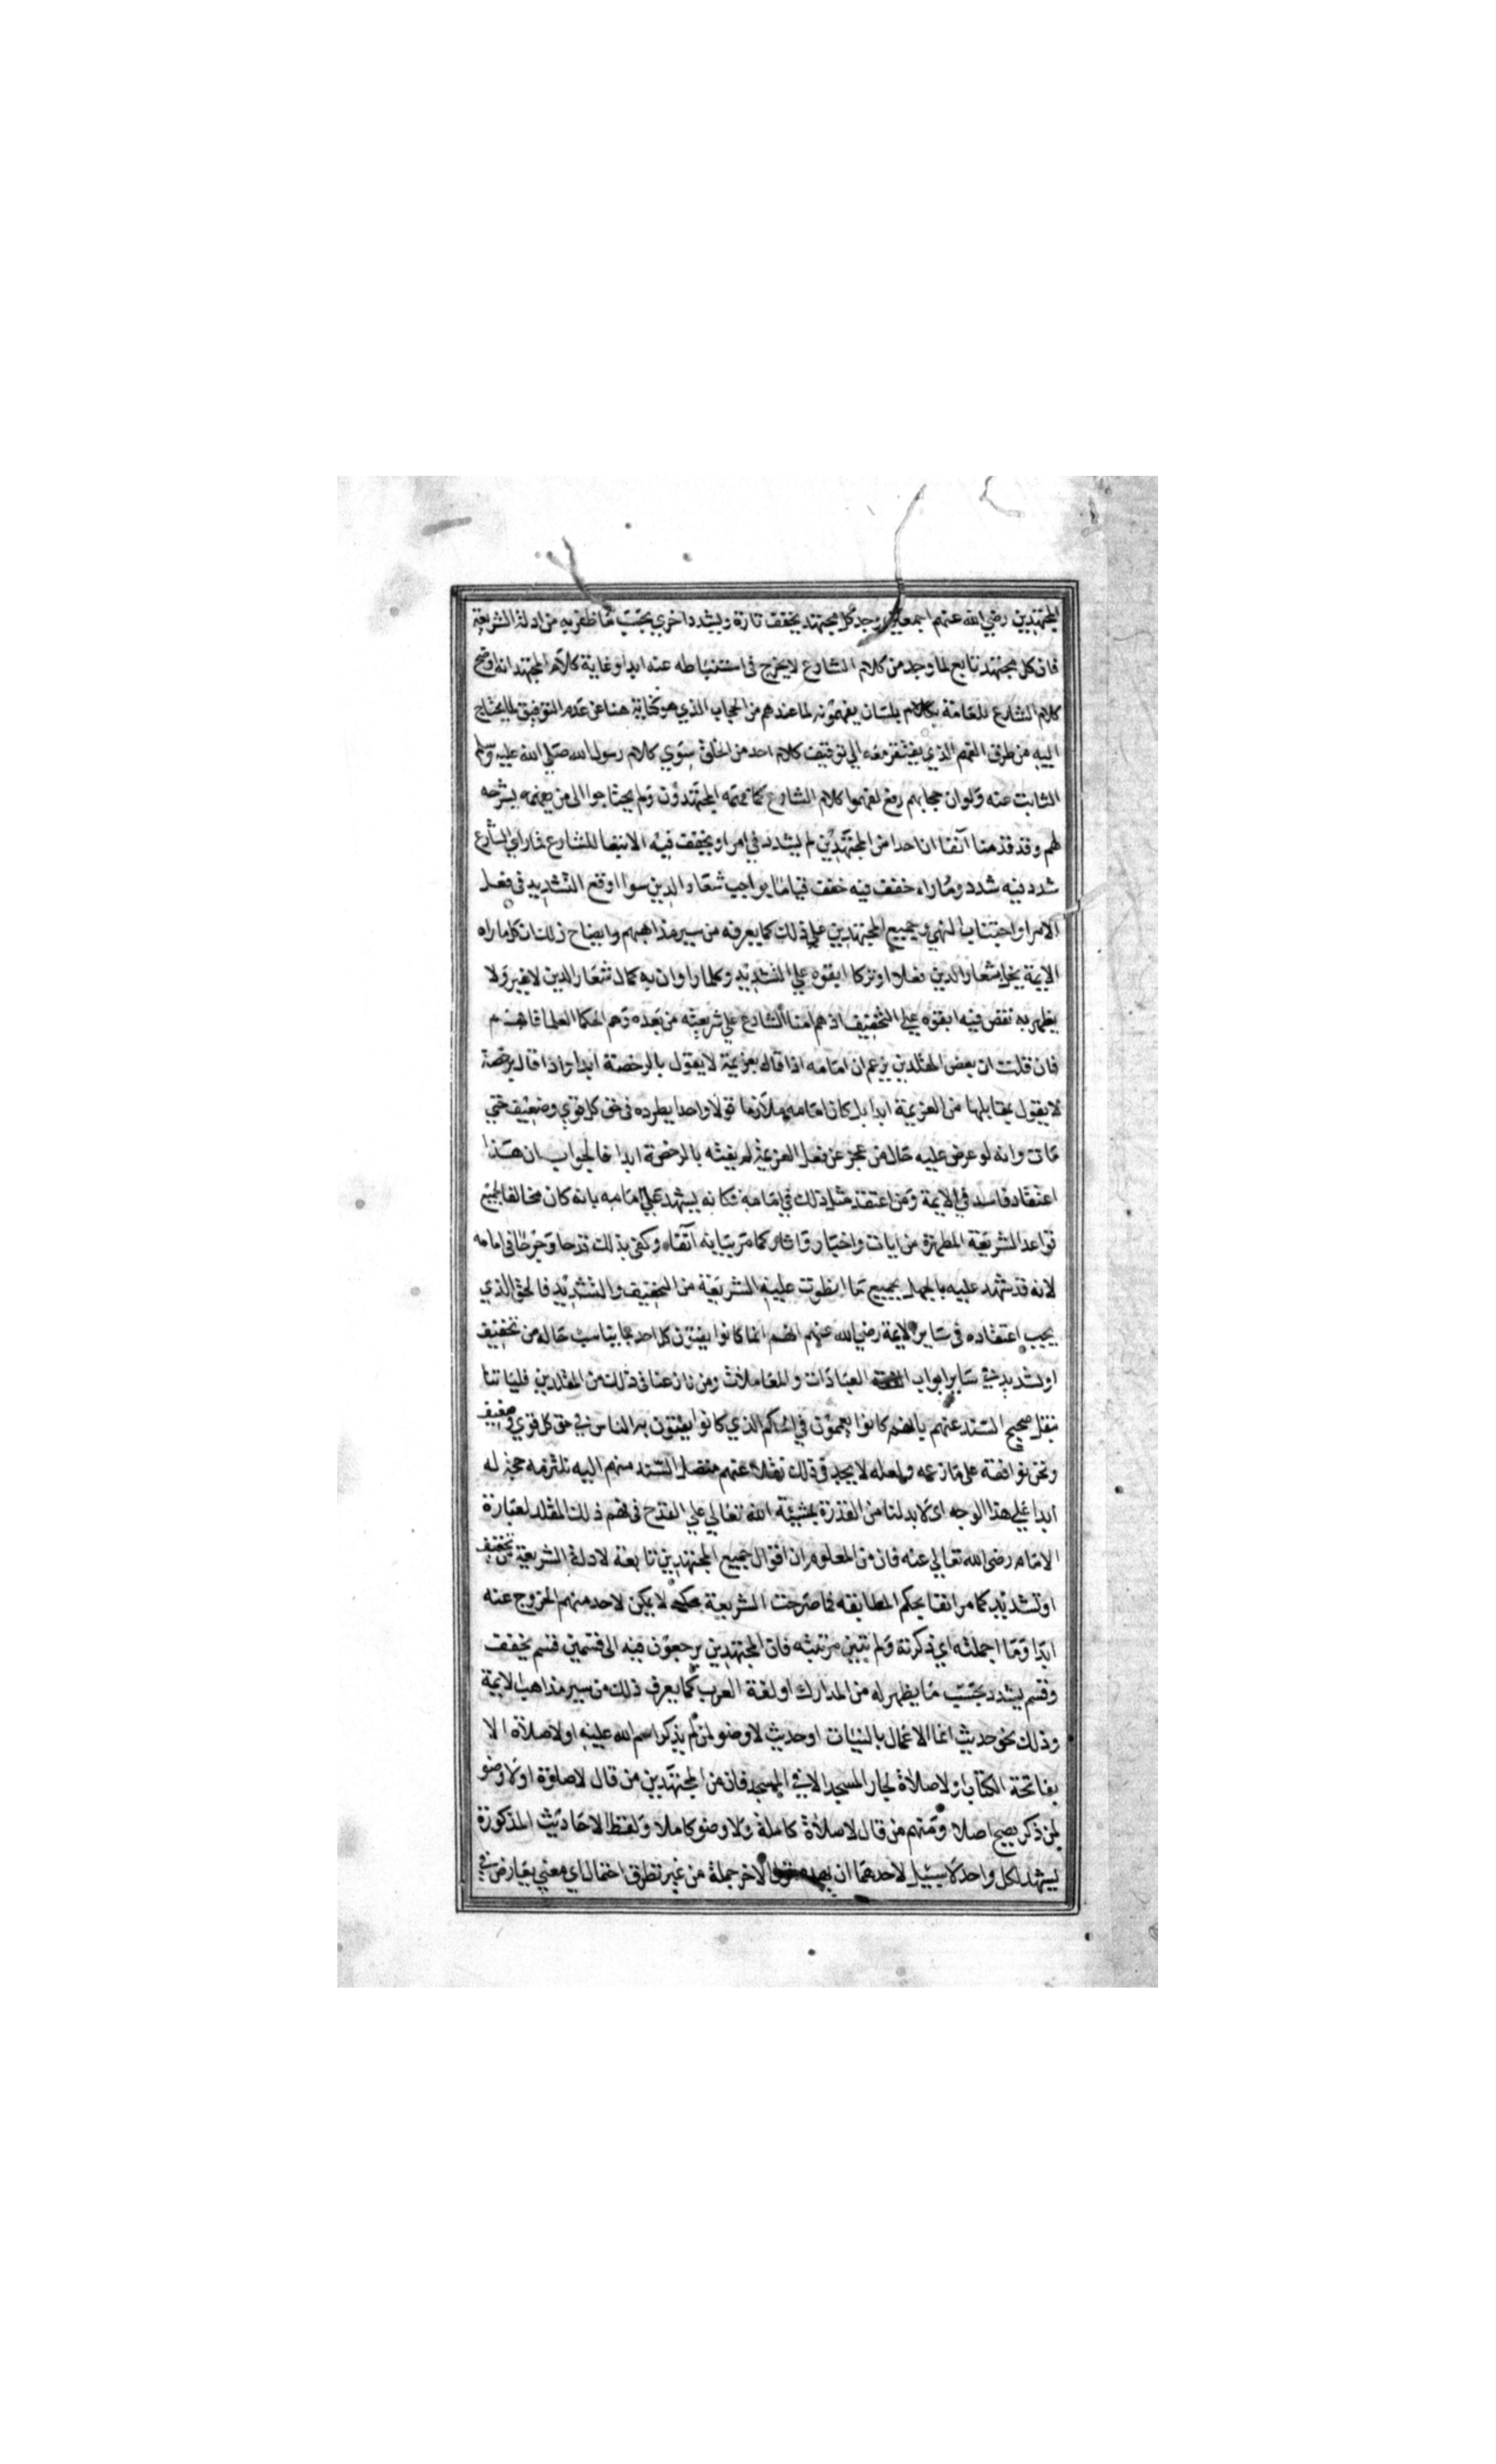 المجتهدين رضي الله عنهم اجمعين وجد كل مجتهد يخفف تارة ويشدد اخري بحسب ما ظفر به من ادلة الشريعة
فان كل مجتهد تابع لما وجد من كلام الشارع لا يخرج في استنباطه عنه ابدا وغاية كلام المجتهد انه اوضح
كلام الشارع للعامة بكلام بلسان يفهمونه لما عندهم من الحجاب الذي هو كناية هنا عن عدم التوفيق لما يحتاج
اليه من طرق الفهم الذي يفتقر معه الي توقيف كلام احد من الخلق سوي كلام رسول الله صلي الله عليه وسلم
الثابت عنه ولو ان حجابهم رفع لفهموا كلام الشارع كما فهمه المجتهدون ولم يحتاجوا الى من يشرحه
لهم وقد قدمنا آنفا ان احدا من المجتهدين لم يشدد في امر او يخفف فيه الا تبعا للشارع فما راي الشارع
شدد فيه شدد وما راه خفف فيه خفف قياما بواجب شعار الدين سوا اوقع التشديد في فعل
الامر او اجتناب النهي وجميع المجتهدين علي ذلك كما يعرفه من سبر مذاهبهم وايضاح ذلك ان كل ما راه
الايمة يخل بشعار الدين فعلا او تركا ابقوه علي التشديد وكلما راوا ان به كمال شعار الدين لا غير ولا
يظهر به نقص فيه ابقوه علي التخفيف اذ هم امنا الشارع علي شريعته من بعده وهم الحكما العلما فافهم
فان قلت ان بعض المقلدين يزعم ان امامه اذا قال بعزيمة لا يقول بالرخصة ابدا واذا قال برخصة
لا يقول بمقابلها من العزيمة ابدا بل كان امامه ملازما قولا واحدا يطرده في حق كل قوي وضعيف حتي
مات وانه لو عرض عليه حال من عجز عن فعل العزيمة لم يفته بالرخصة ابدا فالجواب ان هذا
اعتقاد فاسد في الايمة ومن اعتقد مثل ذلك في امامه فكانه يشهد علي امامه بانه كان مخالفا لجميع
قواعد الشريعة المطهرة من ايات واخبار واثار كما مر بيانه آنفا وكفى بذلك قدحا وجرحا في امامه
لانه قد شهد عليه بالجهل بجميع ما انطوت عليه الشريعة من التخفيف والتشديد فالحق الذي
يجب اعتقاده في ساير الايمة رضي الله عنهم انهم انما كانوا يفتون كل احد بما يناسب حاله من تخفيف
او تشديد في ساير ابواب العبادات والمعاملات ومن نازعنا في ذلك من المقلدين فلياتنا
بنقل صحيح السند عنهم بانهم كانوا يعممون في الحكم الذي كانوا يفتون به الناس في حق كل قوي وضعيف
ونحن نوافقه على ما زعمه ولعله لا يجد في ذلك نقلا عنهم متصل السند منهم اليه تلزمه حجة له
ابدا علي هذا الوجه اي لابد لنا من القدرة بمشيئة الله تعالي علي القدح في فهم ذلك المقلد لعبارة
الامام رضي الله تعالي عنه فان من المعلوم ان اقوال جميع المجتهدين تابعة لادلة الشريعة من تخفيف
او تشديد كما مر انفا بحكم المطابقه فما صرحت الشريعة بحكمه لا يمكن لاحد منهم الخروج عنه
ابدا وما اجملته اي ذكرته ولم تبين مرتبته فان المجتهدين يرجعون فيه الى قسمين قسم يخفف
وقسم يشدد بحسب ما يظهر له من المدارك او لغة العرب كما يعرف ذلك من سبر مذاهب الايمة
وذلك نحو حديث انما الاعمال بالنيات او حديث لا وضو لمن لم يذكر اسم الله عليه او لا صلاة الا
بفاتحة الكتاب او لا صلاة لجار المسجد الا في المسجد فان من المجتهدين من قال لا صلوة اولا وضو
لمن ذكر يصح اصلا ومنهم من قال لا صلاة كاملة ولا وضو كاملا ولفظ الاحاديث المذكورة
يشهد لكل واحد لا سبيل لاحدهما ان الاخر جملة من غير تطرق احتمال اي معني يعارض في